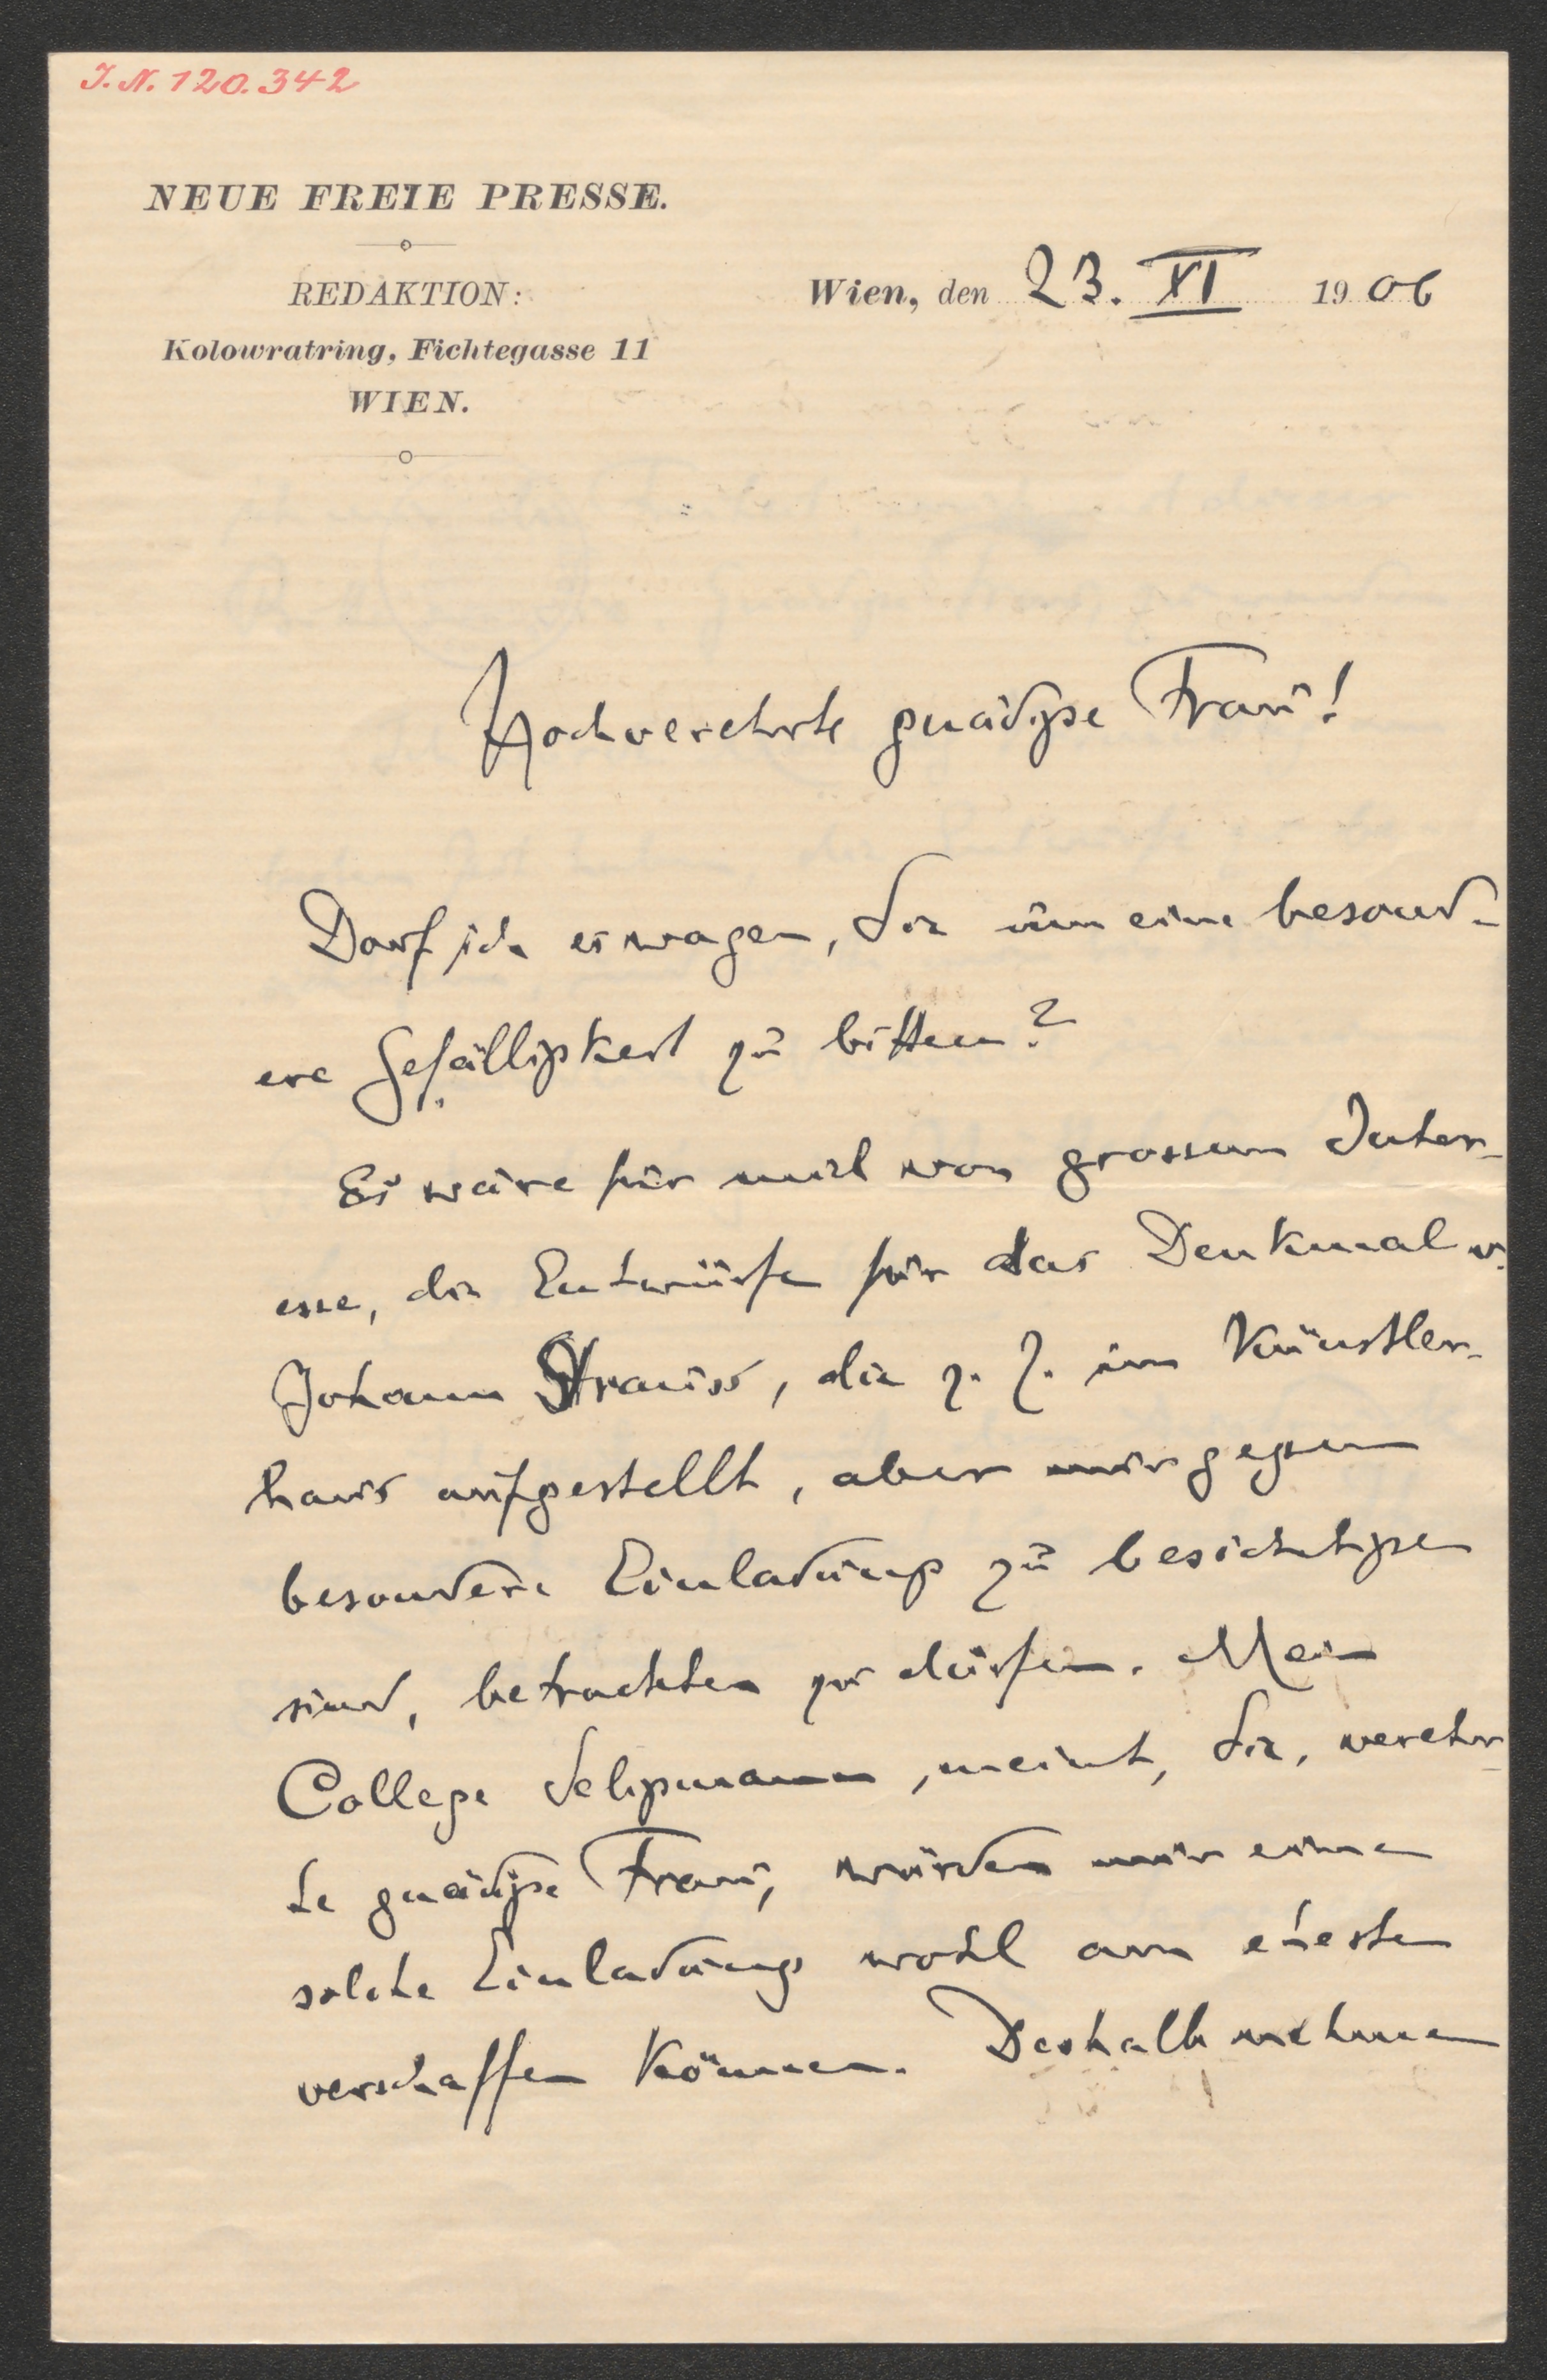 I. N. 120.342
NEUE FREIE PRESSE.
REDAKTION:
Kolowratring, Fichtegasse 11
WIEN.
Wien, den 23. XI 1906
Hochverehrte gnädige Frau!
Darf ich es wagen, Sie um eine besond-
ere Gefälligkeit zu bitten?
Es wäre für mich von grossem Inter-
esse, die Entwürfe für das Denkmal v.
Johann Strauss, die z. Z. im Künstler-
haus aufgestellt, aber nur gegen
besondere Einladung zu besichtigen
sind, betrachten zu dürfen. Mein
College Seligmann, meint, Sie, verehr-
te gnädige Frau, würden mir eine
solche Einladung wohl am ehesten
verschaffen können. Deshalb nehme